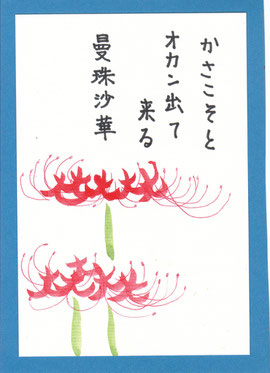 かさこそと
オカン出て
来る
曼珠沙華